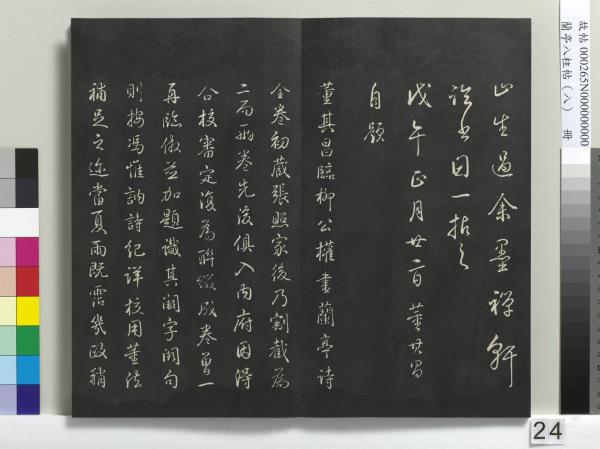 山生過余墨禪軒
詮書因一拈之
戊午正月廿二日董其昌
自題
董其昌臨柳公權書蘭亭詩
全卷初藏張照家後乃割截為
二而兩卷先後俱入內府因得
合校審定復為聯綴成卷曾一
再臨倣並加題識其闕字闕句
則按馮惟訥詩紀詳校用董法
補足之迩當夏雨既霑幾暇稍
故帖 000265N000000000
蘭亭八柱帖（八） 冊
24